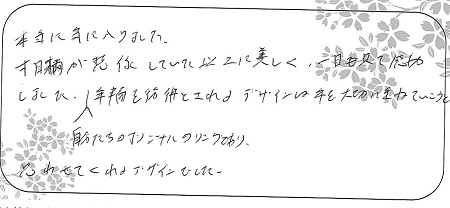 本当に気に入りました。
杢目柄が想像していた以上に美しく、一目見て感動
しました。年輪を彷彿とさせるデザインは年を大切に重ねていこうと
自分たちのオリジナルのリングであり、
思わせてくれるデザインでした。